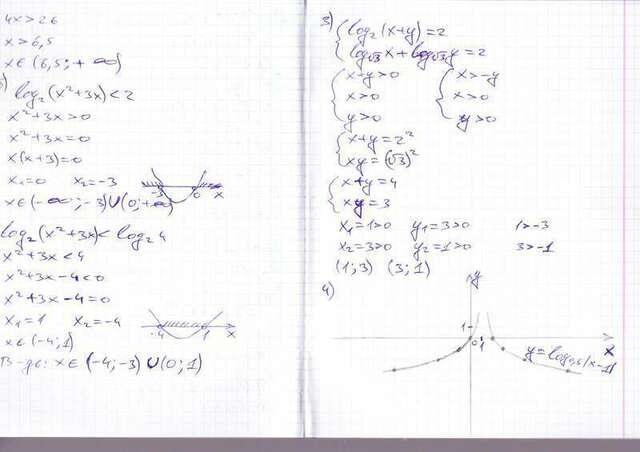 4x>26
x>6,5
x∈(6,5;+∞)
log₂(x²+3x)<2
x²+3x>0
x²+3x=0
x(x+3)=0
x₁=0 x₂=-3
-3 0 x
x∈(-∞;-3)∪(0;+∞)
log₂(x²+3x)<log₂4
x²+3x<4
x²+3x-4<0
x²+3x-4=0
x₁=1 x₂=-4
-4 1 x
x∈(-4;1)
В-дь: x∈(-4;-3)∪(0;1)
3) {log₂(x+y)=2
log√3 x+log√3 y=2
{x+y>0 {x>-y
x>0 x>0
y>0 y>0
{x+y=2²
xy=(√3)²
{x+y=4
xy=3
x₁=1>0 y₁=3>0 1>-3
x₂=3>0 y₂=1>0 3>-1
(1;3) (3;1)
4) y
1
0 1 x
y=log₀,₅|x-1|